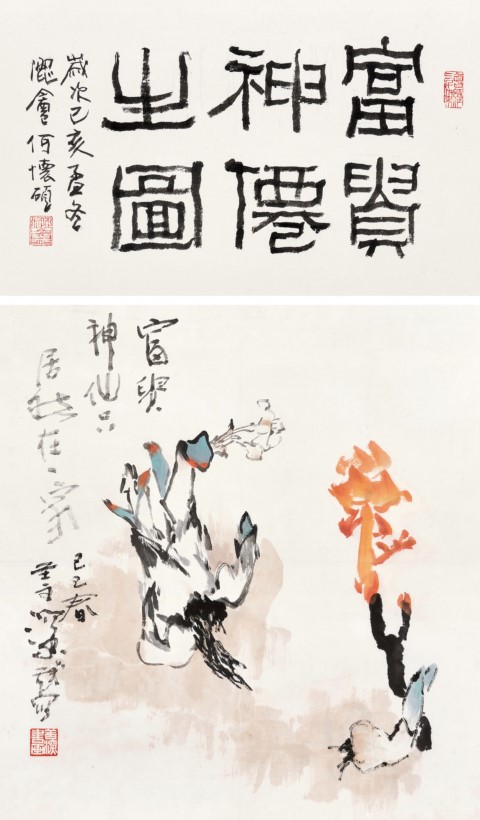 富貴
神僊
之圖
歲次己亥孟冬
澀盦何懷碩
富貴
神仙品
居然在一家
己巳春